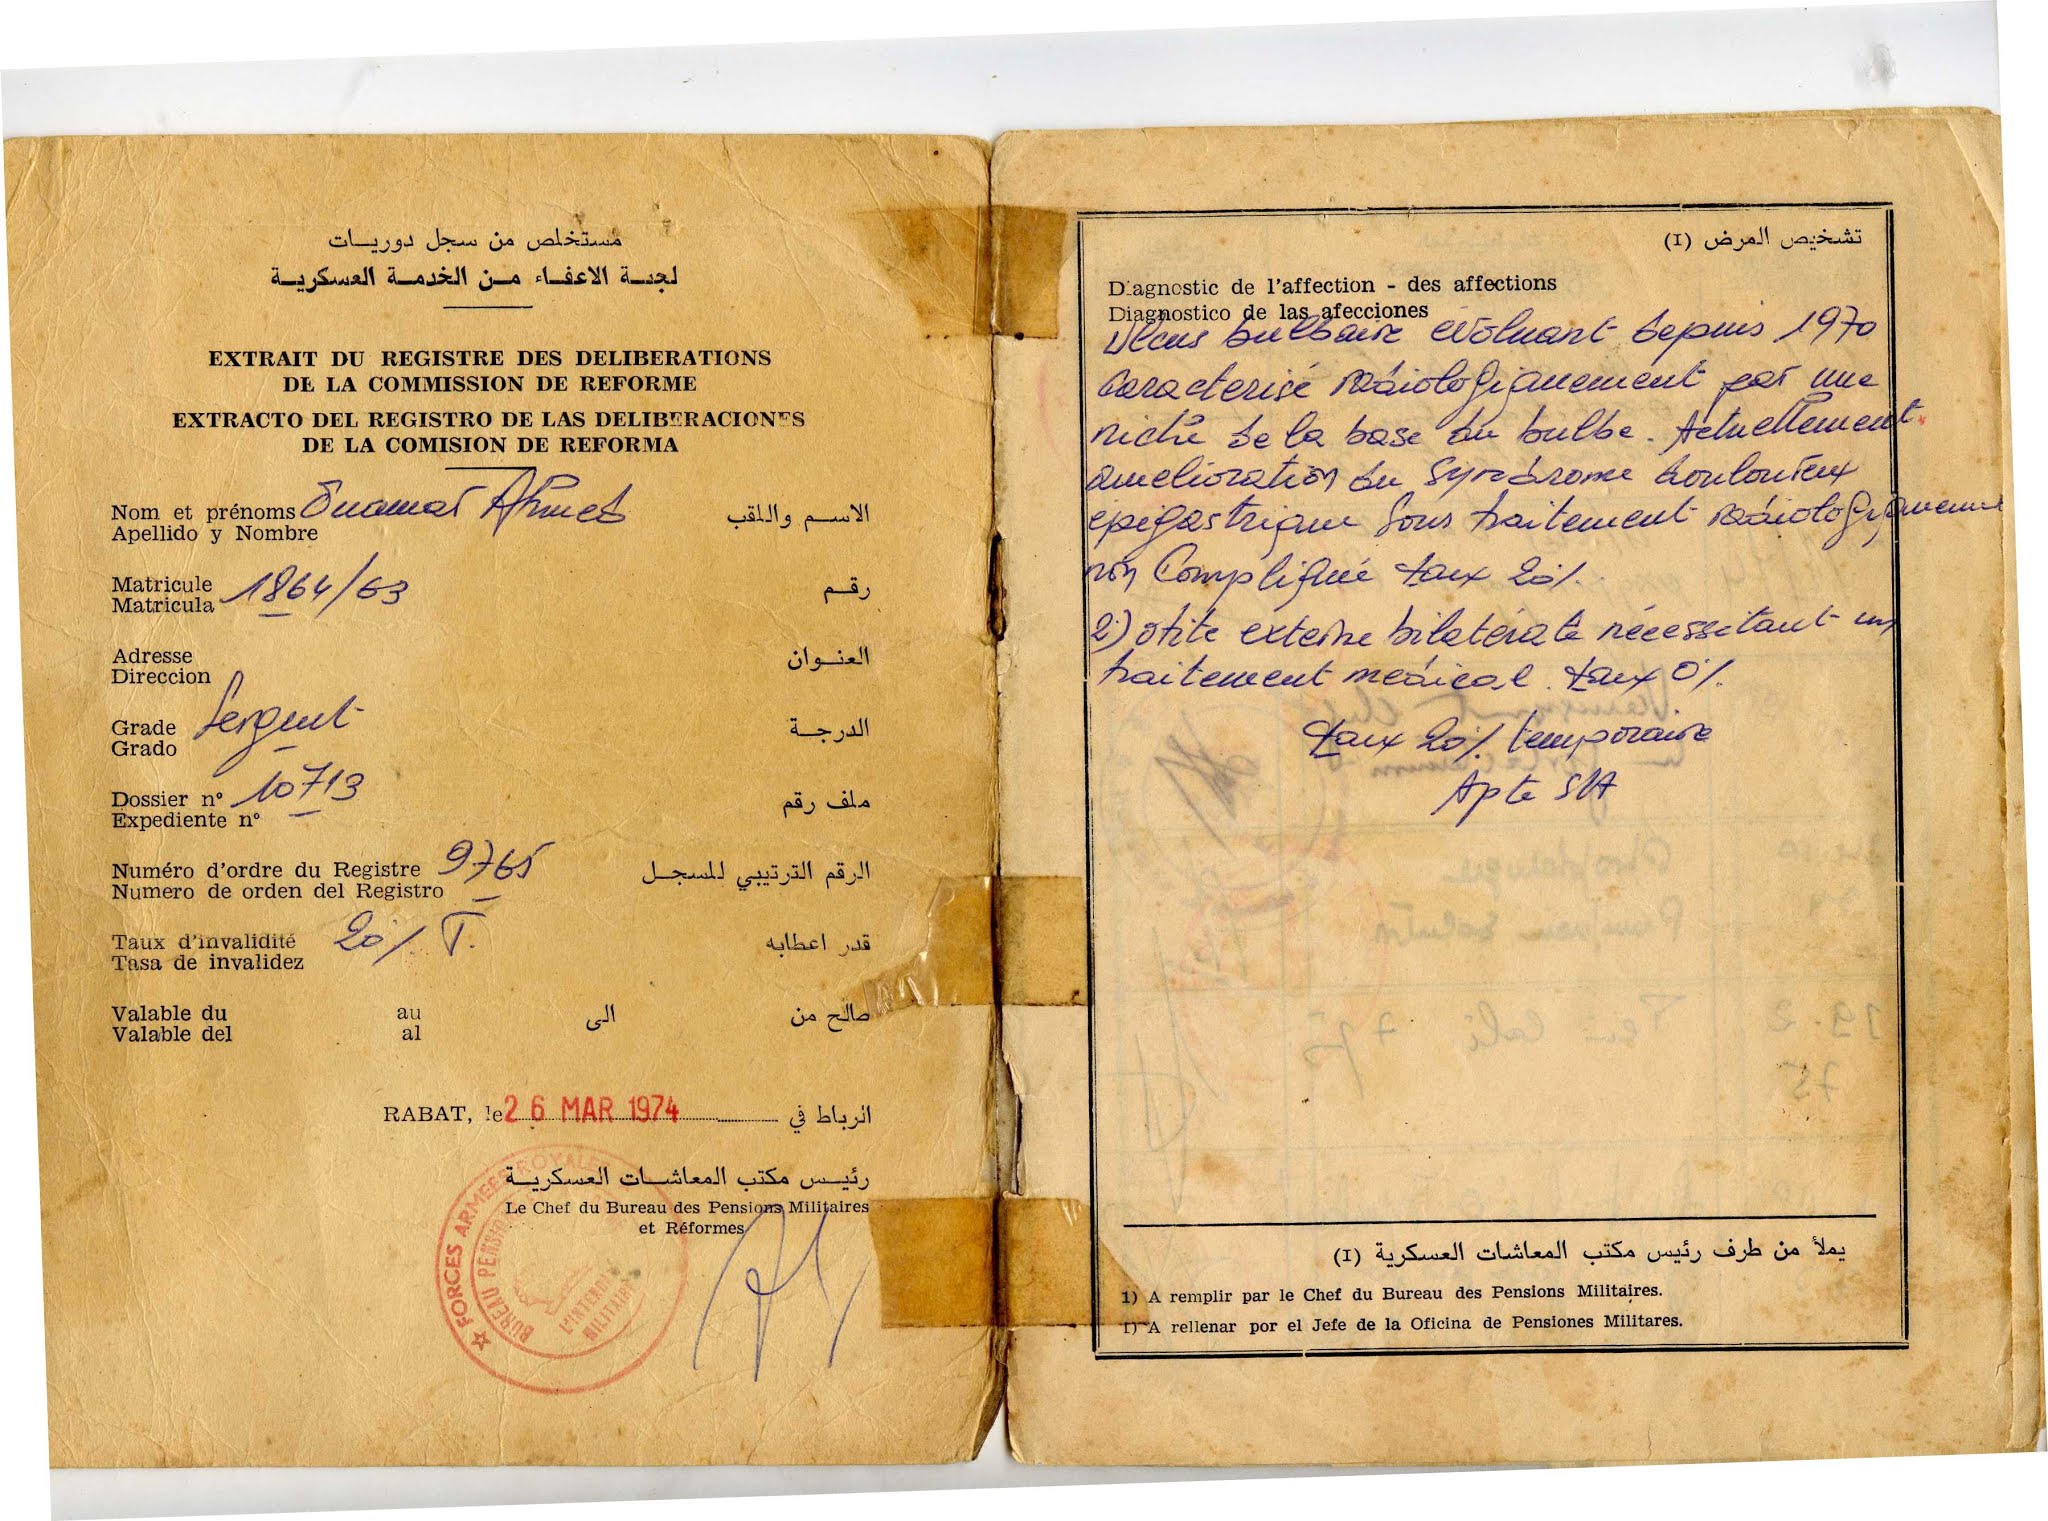 مستخلص من سجل دوريات
لجنة الاعفاء من الخدمة العسكرية
EXTRAIT DU REGISTRE DES DELIBERATIONS
DE LA COMMISSION DE REFORME
EXTRACTO DEL REGISTRO DE LAS DELIBERACIONES
DE LA COMISION DE REFORMA
Nom et prénoms Ouamar Ahmed الاسم واللقب
Apellido y Nombre
Matricule 1864/63 رقم
Matricula
Adresse العنوان
Direccion
Grade Sergent الدرجة
Grado
Dossier n° 10713 ملف رقم
Expediente n°
Numéro d'ordre du Registre 9765 الرقم الترتيبي للمسجل
Numero de orden del Registro
Taux d'invalidité 20% T. قدر اعطابه
Tasa de invalidez
Valable du au الى صالح من
Valable del al
RABAT, le 26 MAR 1974 الرباط في
رئيس مكتب المعاشات العسكرية
Le Chef du Bureau des Pensions Militaires
et Réformes
FORCES ARMEES ROYALES
BUREAU PENSIONS
L'INTENDANCE
MILITAIRE
تشخيص المرض (I)
Diagnostic de l'affection - des affections
Diagnostico de las afecciones
Ulcus bulbaire evoluant depuis 1970
caracterisé radiologiquement par une
niche de la base du bulbe. Actuellement
amelioration du syndrome douloureux
epigastrique sous traitement radiologiquement
non compliqué taux 20%.
2) otite externe bilatérale nécessitant un
traitement médical. taux 0%.
taux 20% temporaire
Apte SA
يملأ من طرف رئيس مكتب المعاشات العسكرية (I)
1) A remplir par le Chef du Bureau des Pensions Militaires.
1) A rellenar por el Jefe de la Oficina de Pensiones Militares.